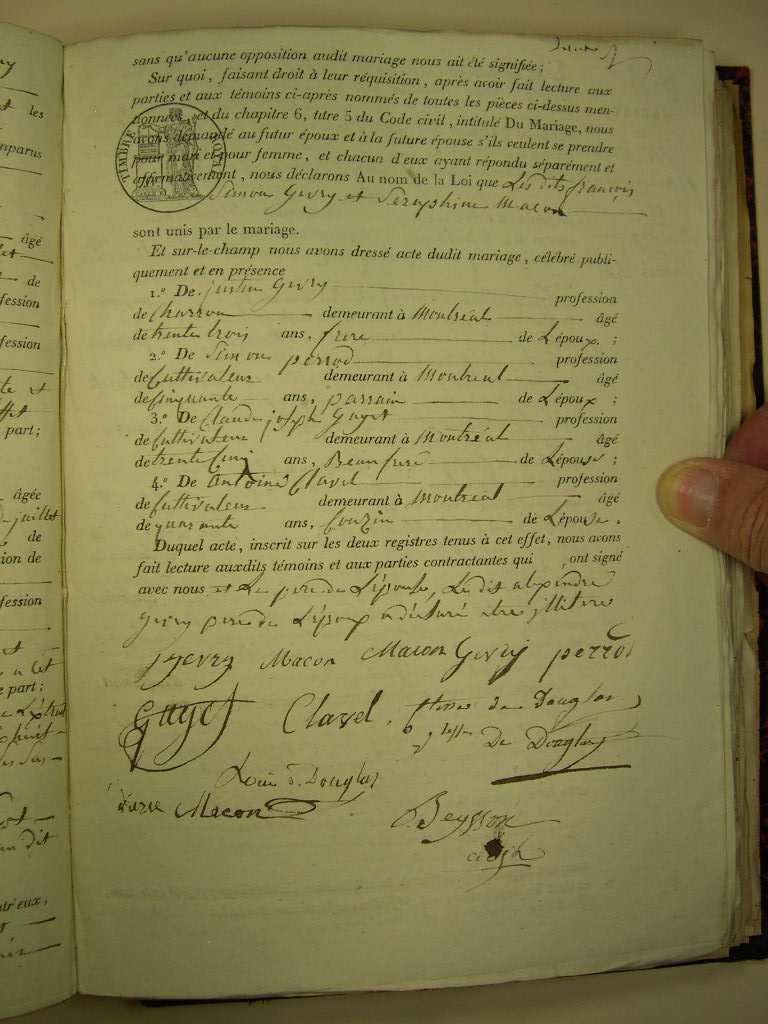 sans qu'aucune opposition audit mariage nous ait été signifiée;
Sur quoi, faisant droit à leur réquisition, après avoir fait lecture aux
parties et aux témoins ci-après nommés de toutes les pièces ci-dessus men-
données, et du chapitre 6, titre 5 du Code civil, intitulé Du Mariage, nous
avons demandé au futur époux et à la future épouse s'ils veulent se prendre
pour mari et pour femme, et chacun d'eux ayant répondu séparément et
affirmativement, nous déclarons Au nom de la Loi que Les dits françois
Simon Gevry et Seraphine Macon
TIMBRE ROYAL
sont unis par le mariage.
Et sur-le-champ nous avons dressé acte dudit mariage, célébré publi-
quement et en présence
1.º De justin Gevry profession
de Charron demeurant à Montréal âgé
de trente trois ans, frere de L'époux ;
2.º De Simon perrod profession
de Cultivateur demeurant à Montréal âgé
de Cinquante ans, parrain de L'époux ;
3.º De Claude joseph Guyet profession
de Cultivateur demeurant à Montréal âgé
de trente Cinq ans, Beaufrere de L'épouse ;
4.º De Antoine Clavel profession
de Cultivateur demeurant à Montréal âgé
de quarante ans, Couzin de L'épouse .
Duquel acte, inscrit sur les deux registres tenus à cet effet, nous avons
fait lecture auxdits témoins et aux parties contractantes qui ont signé
avec nous et Le pere de L'épouse, Le dit alexandre
Gevry pere de L'époux a déclaré etre illitere
jgevry Macon Macon Gevry perrod
Guyet Clavel. de Douglas
De Douglas
Louis d. Douglas
Macon
Beysson